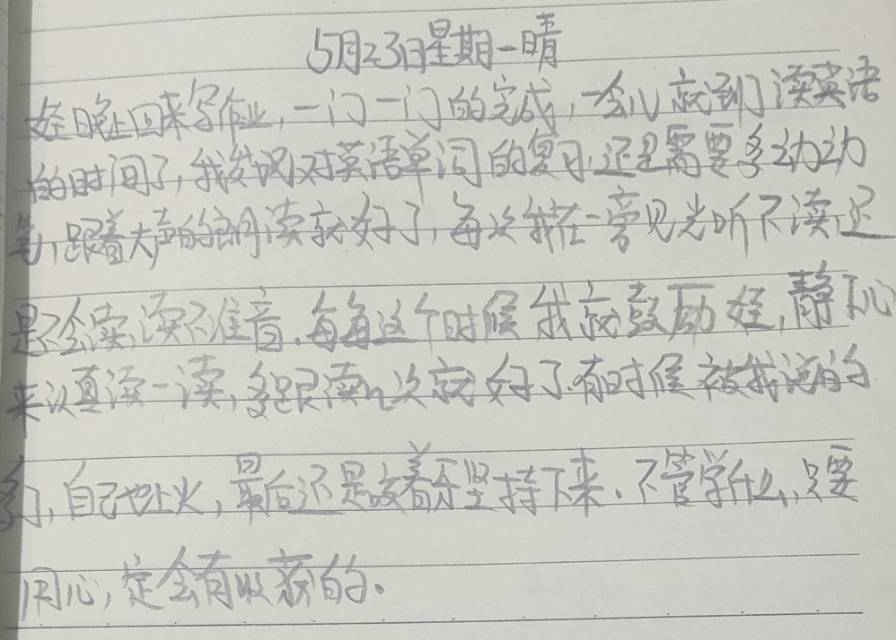 5月23日星期一晴
娃晚上回来写作业,一门一门的完成,一会儿就到了读英语
的时间了,我发现对英语单词的复习,还是需要多动动
笔,跟着大声的朗读就好了,每次我在一旁见光听不读,还
是不会读,读不准音,每每这个时候我就鼓励娃,静下心
来认真读一读,多跟读几次就好了.有时候被我说的
多了,自己也上火,最后还是咬着牙坚持下来.不管学什么,只要
用心,定会有收获的.